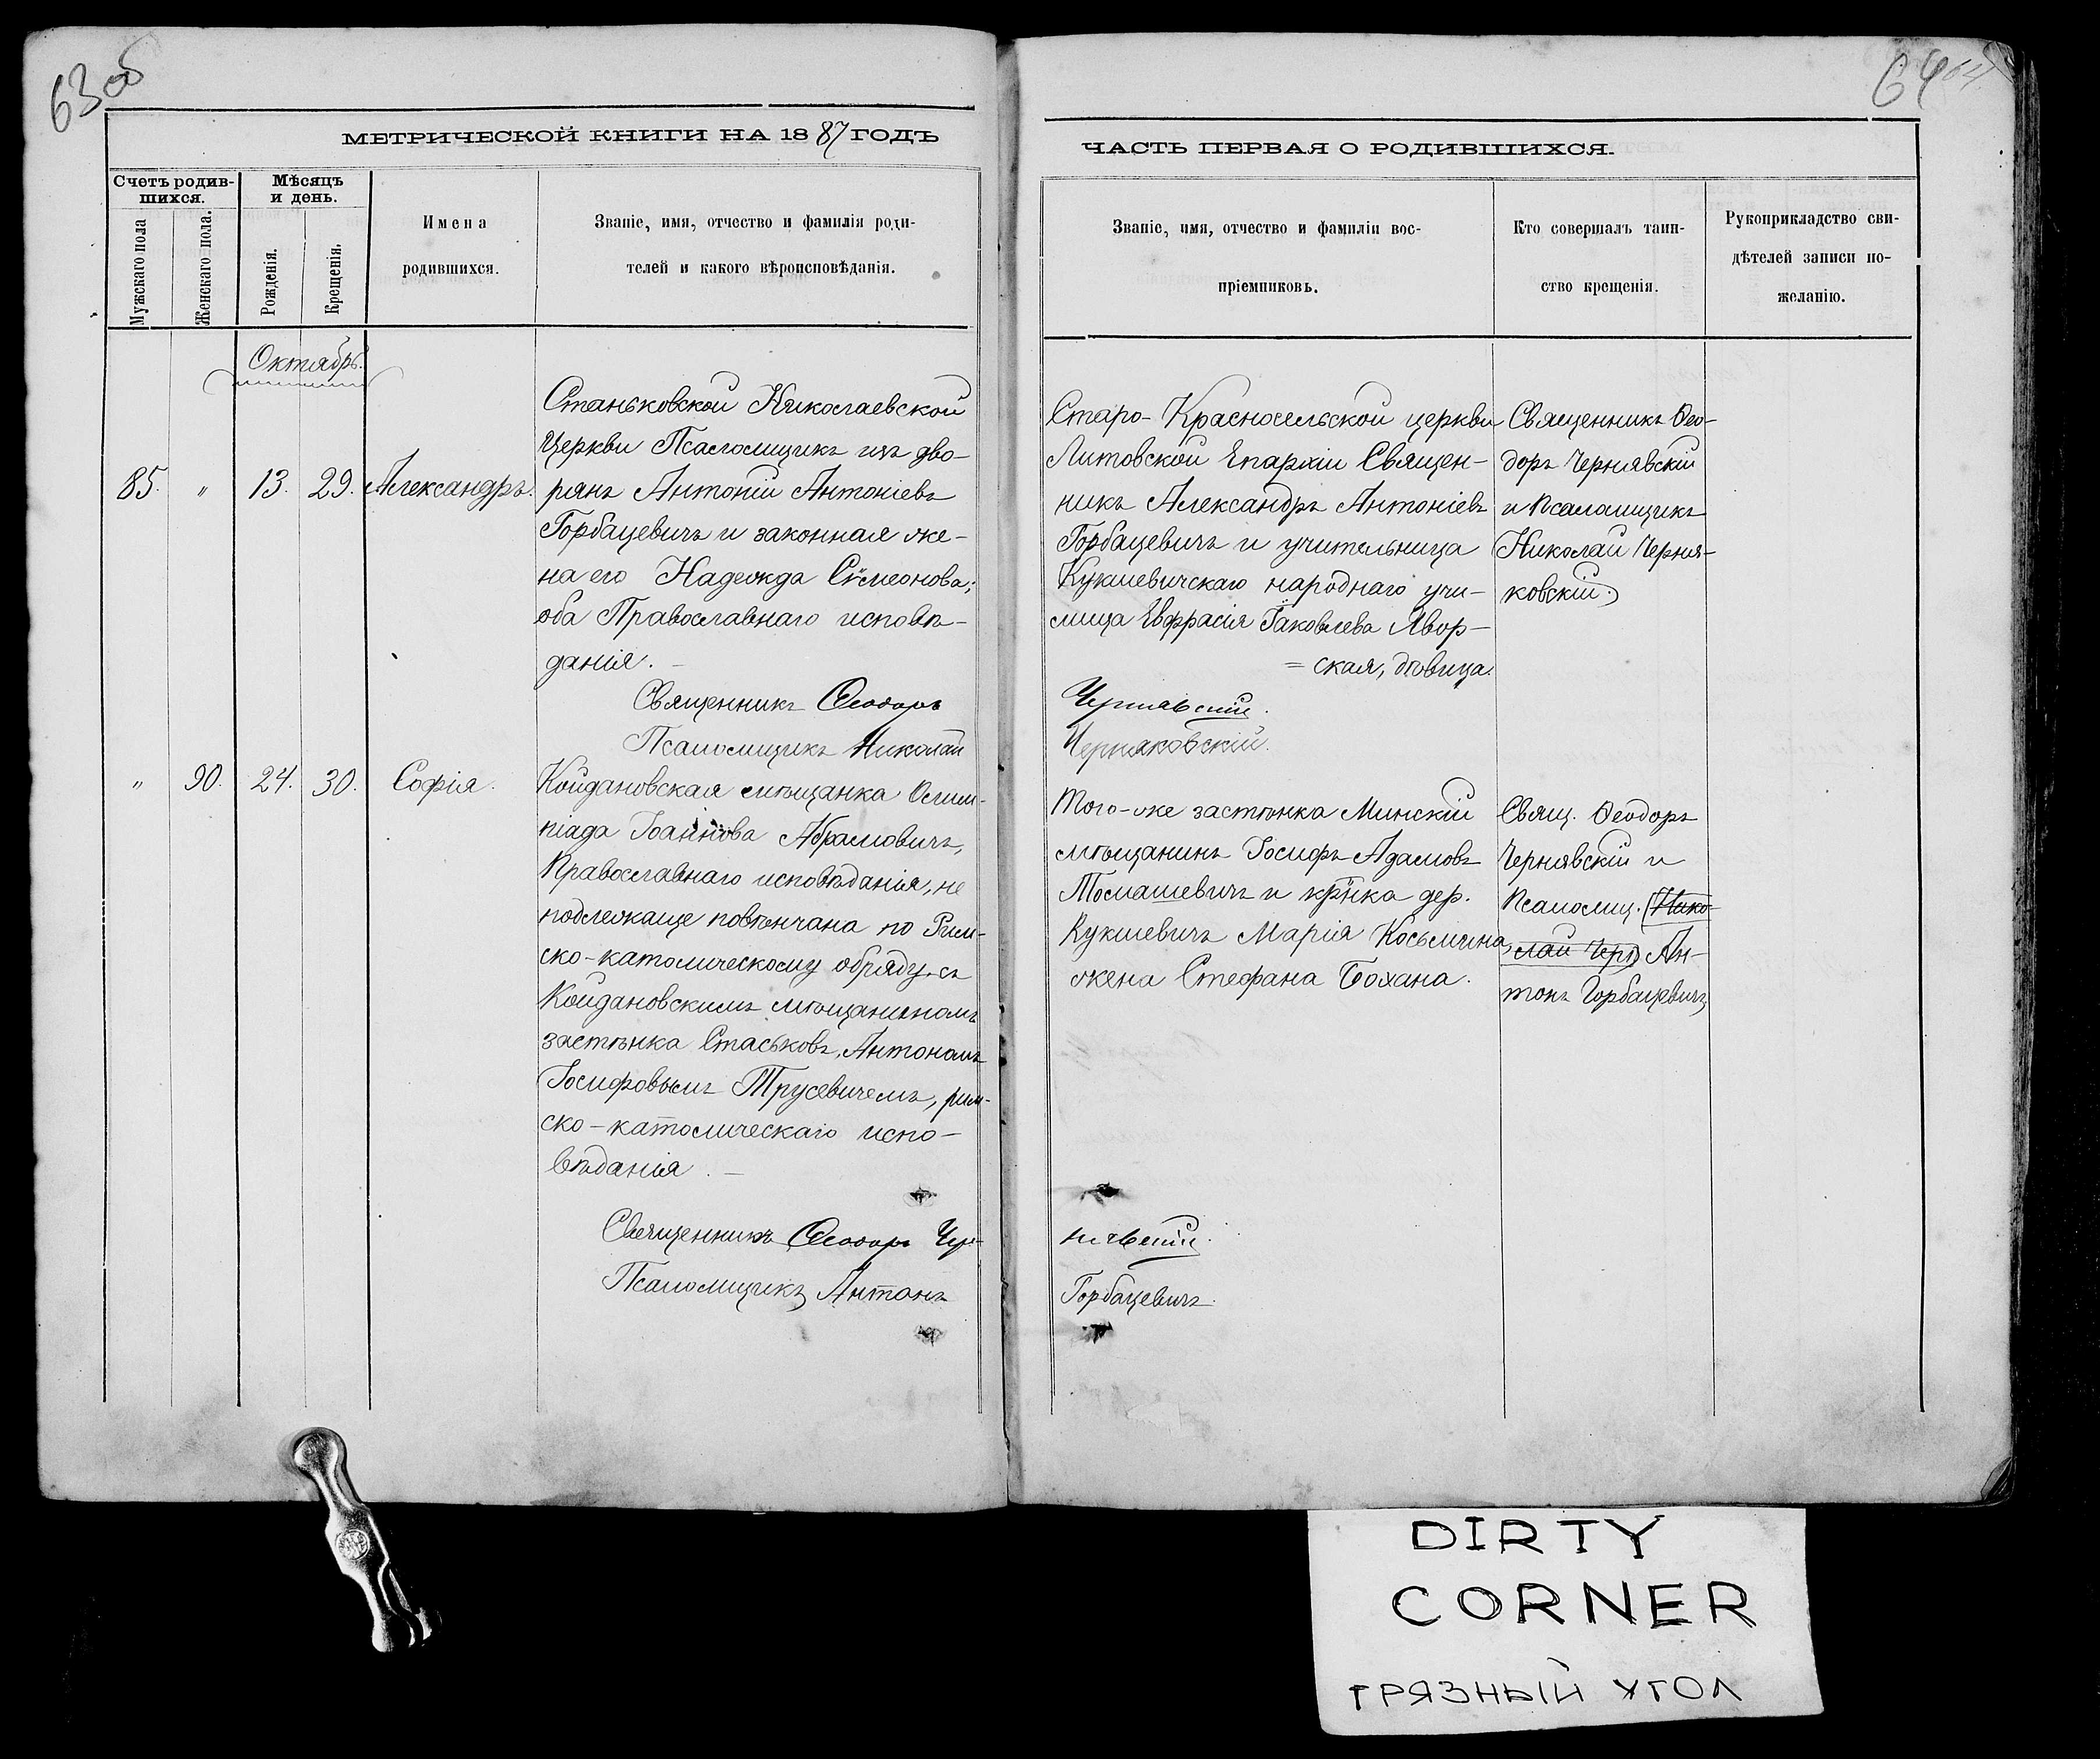 63 об
МЕТРИЧЕСКОЙ КНИГИ НА 1887 ГОДЪ
Счетъ родив-
шихся.
Мѣсяцъ
и день.
Мужскаго пола
Женскаго пола.
Рожденія.
Крещенія.
Имена
родившихся.
Званіе, имя, отчество и фамилія роди-
телей и какого вѣроисповѣданія.
Октябрь.
85.
"
13.
29.
Александръ.
Станьковской Николаевской
Церкви Псаломщикъ изъ дво-
рянъ Антоній Антоніевъ
Горбацевичъ и законная же-
на его Надежда Сѵмеонова;
оба Православнаго исповѣ-
данія. –
Священникъ Ѳеодоръ
Псаломщикъ Николай
"
90.
24.
30.
Софія.
Койдановская мѣщанка Олим-
піада Іоаннова Абрамовичъ,
Православнаго исповѣданія, не
подлежаще повѣнчана по Рим-
ско-католическому обряду съ
Койдановскимъ мѣщаниномъ
застѣнка Стаськовъ, Антономъ
Іосифовымъ Трусевичемъ, рим-
ско-католическаго испо-
вѣданія. –
Священникъ Ѳеодоръ Чер-
Псаломщикъ Антонъ
64 64
ЧАСТЬ ПЕРВАЯ О РОДИВШИХСЯ.
Званіе, имя, отчество и фамиліи вос-
пріемниковъ.
Кто совершалъ таин-
ство крещенія.
Рукоприкладство сви-
дѣтелей записи по-
желанію.
Старо-Красносельской церкви
Литовской Епархіи Священ-
никъ Александръ Антоніевъ
Горбацевичъ и учительница
Кукшевичскаго народнаго учи-
лища Евфрасія Іаковлева Явор-
= ская, дѣвица.
Чернявскій.
Черняковскій.
Священникъ Ѳео-
доръ Чернявскій
и Псаломщикъ
Николай Черня-
ковскій.
Того-же застѣнка Минскій
мѣщанинъ Іосифъ Адамовъ
Томашевичъ и кр̃нка дер.
Кукшевичъ Марія Косьмина,
жена Стефана Бохана.
Свящ. Ѳеодоръ
Чернявскій и
Псаломщ. (Нико-
лай Черн) Ан-
тонъ Горбацевичъ
нявскій.
Горбацевичъ.
DIRTY
CORNER
ГРЯЗНЫЙ УГОЛ